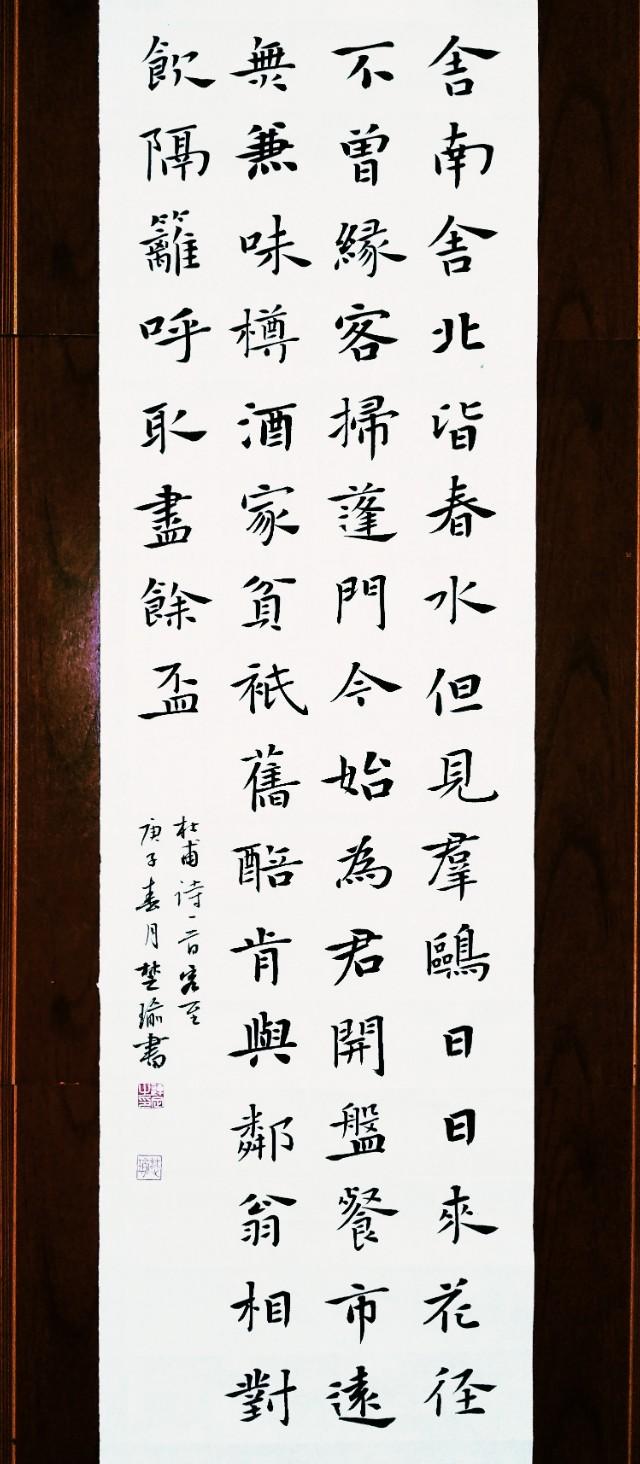 舍南舍北皆春水但見羣鷗日日來花径
不曾緣客掃蓬門今始為君開盤餐市遠
無兼味樽酒家貧衹舊醅肯與鄰翁相對
飲隔籬呼取盡餘盃
杜甫诗一首客至
庚子春月楚瑜書